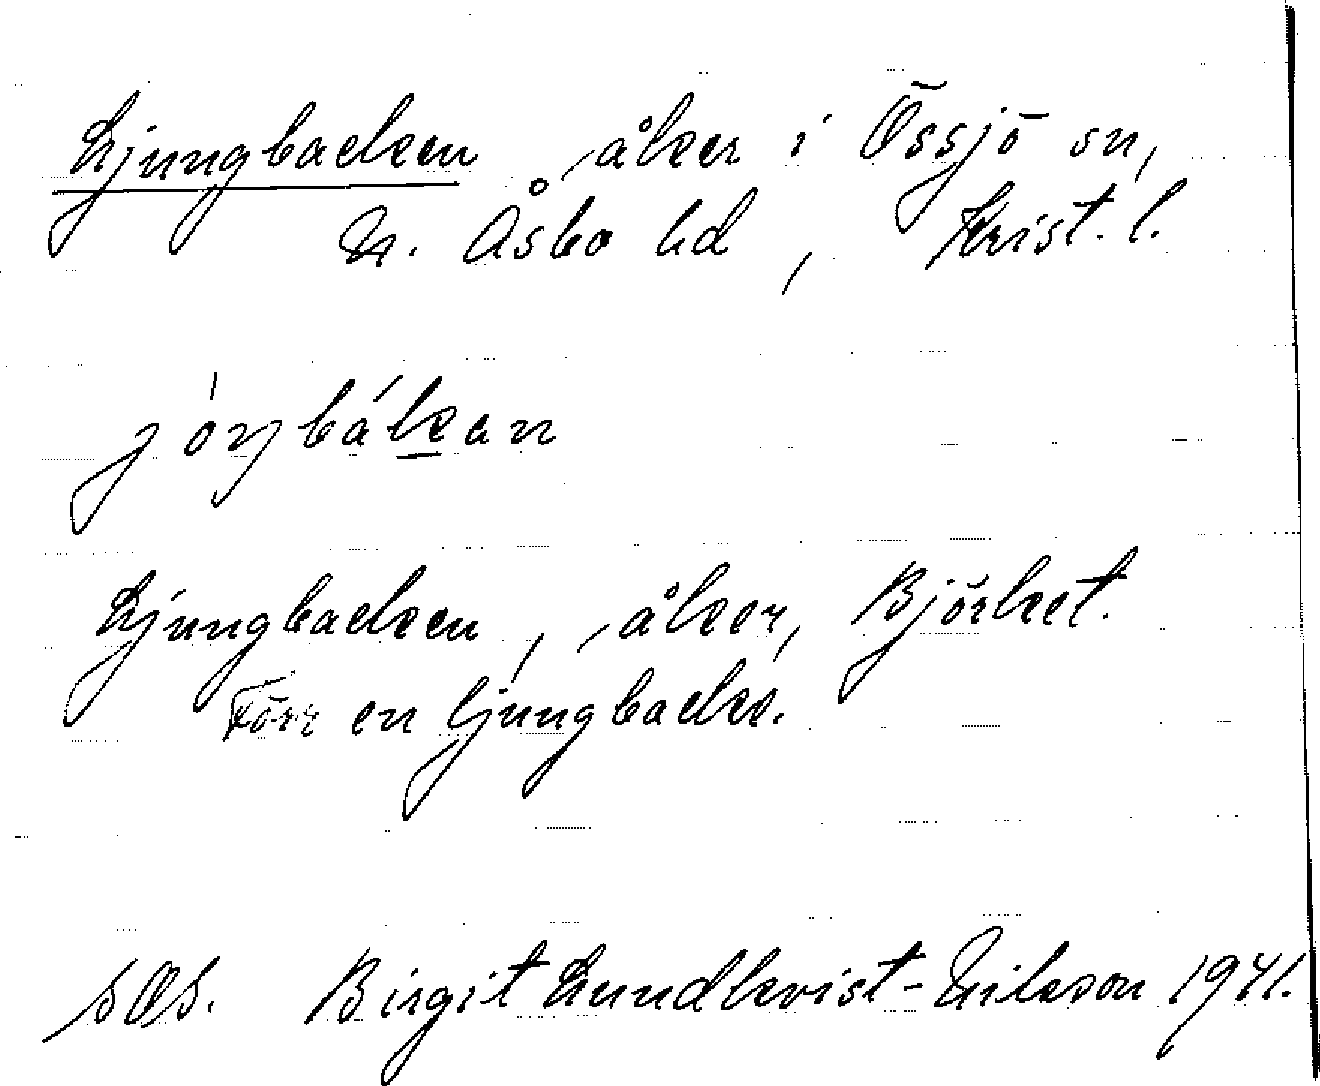 Ljungbacken, åker i Össjö sn,
N. Åsbo hd, Krist. l.
jóŋbákan
Ljungbacken, åker, Björket.
Förr en ljungbacke.
Birgit Lundkvist-Nilsson 1941.